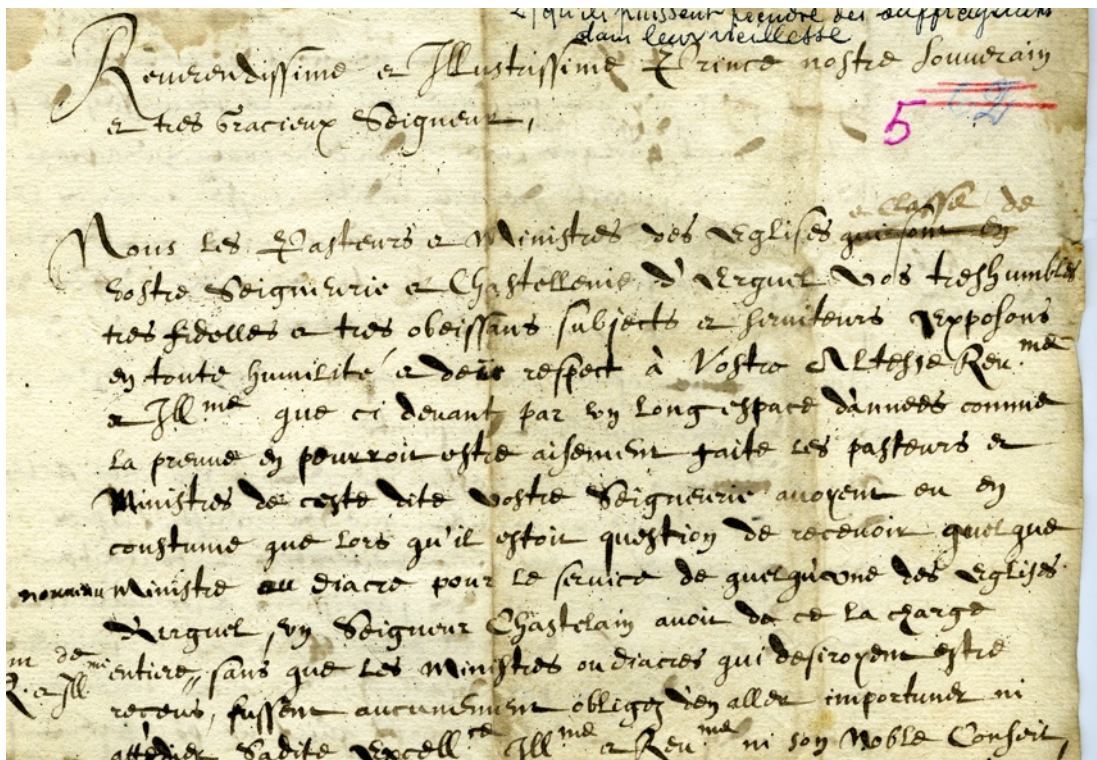 qu'ils puissent prendre des suffragants
dans leur vieillesse
Reverendissime et Illustrissime Prince nostre Souverain
et tres Gracieux Seigneur,
5
Nous les Pasteurs et Ministres des Eglises qui sont en
et Classe de
vostre Seigneurie et Chastellenie d'Erguel vos treshumbles
tres fidelles et tres obeissans subjects et serviteurs Exposons
en toute humilité et deüe respect à Vostre Altesse Reu.me
et Ill.me que ci devant par vn long espace dànnées comme
la preuue en pourroit estre aisement faite les pasteurs et
Ministres de ceste dite vostre Seigneurie auoyent eu en
coustume que lors qu'il estoit question de receuoir quelque
nouueau Ministre ou diacre pour le seruice de quelqu'vne des Eglises
d'Erguel, vn Seigneur Chastelain auoit de ce la charge
entiere, sans que les Ministres ou diacres qui desiroyent estre
receus, fussent aucunement obligez d'en aller importuner ni
attedier Sadite Excell.ce Ill.me et Reu.me ni son Noble Conseil,